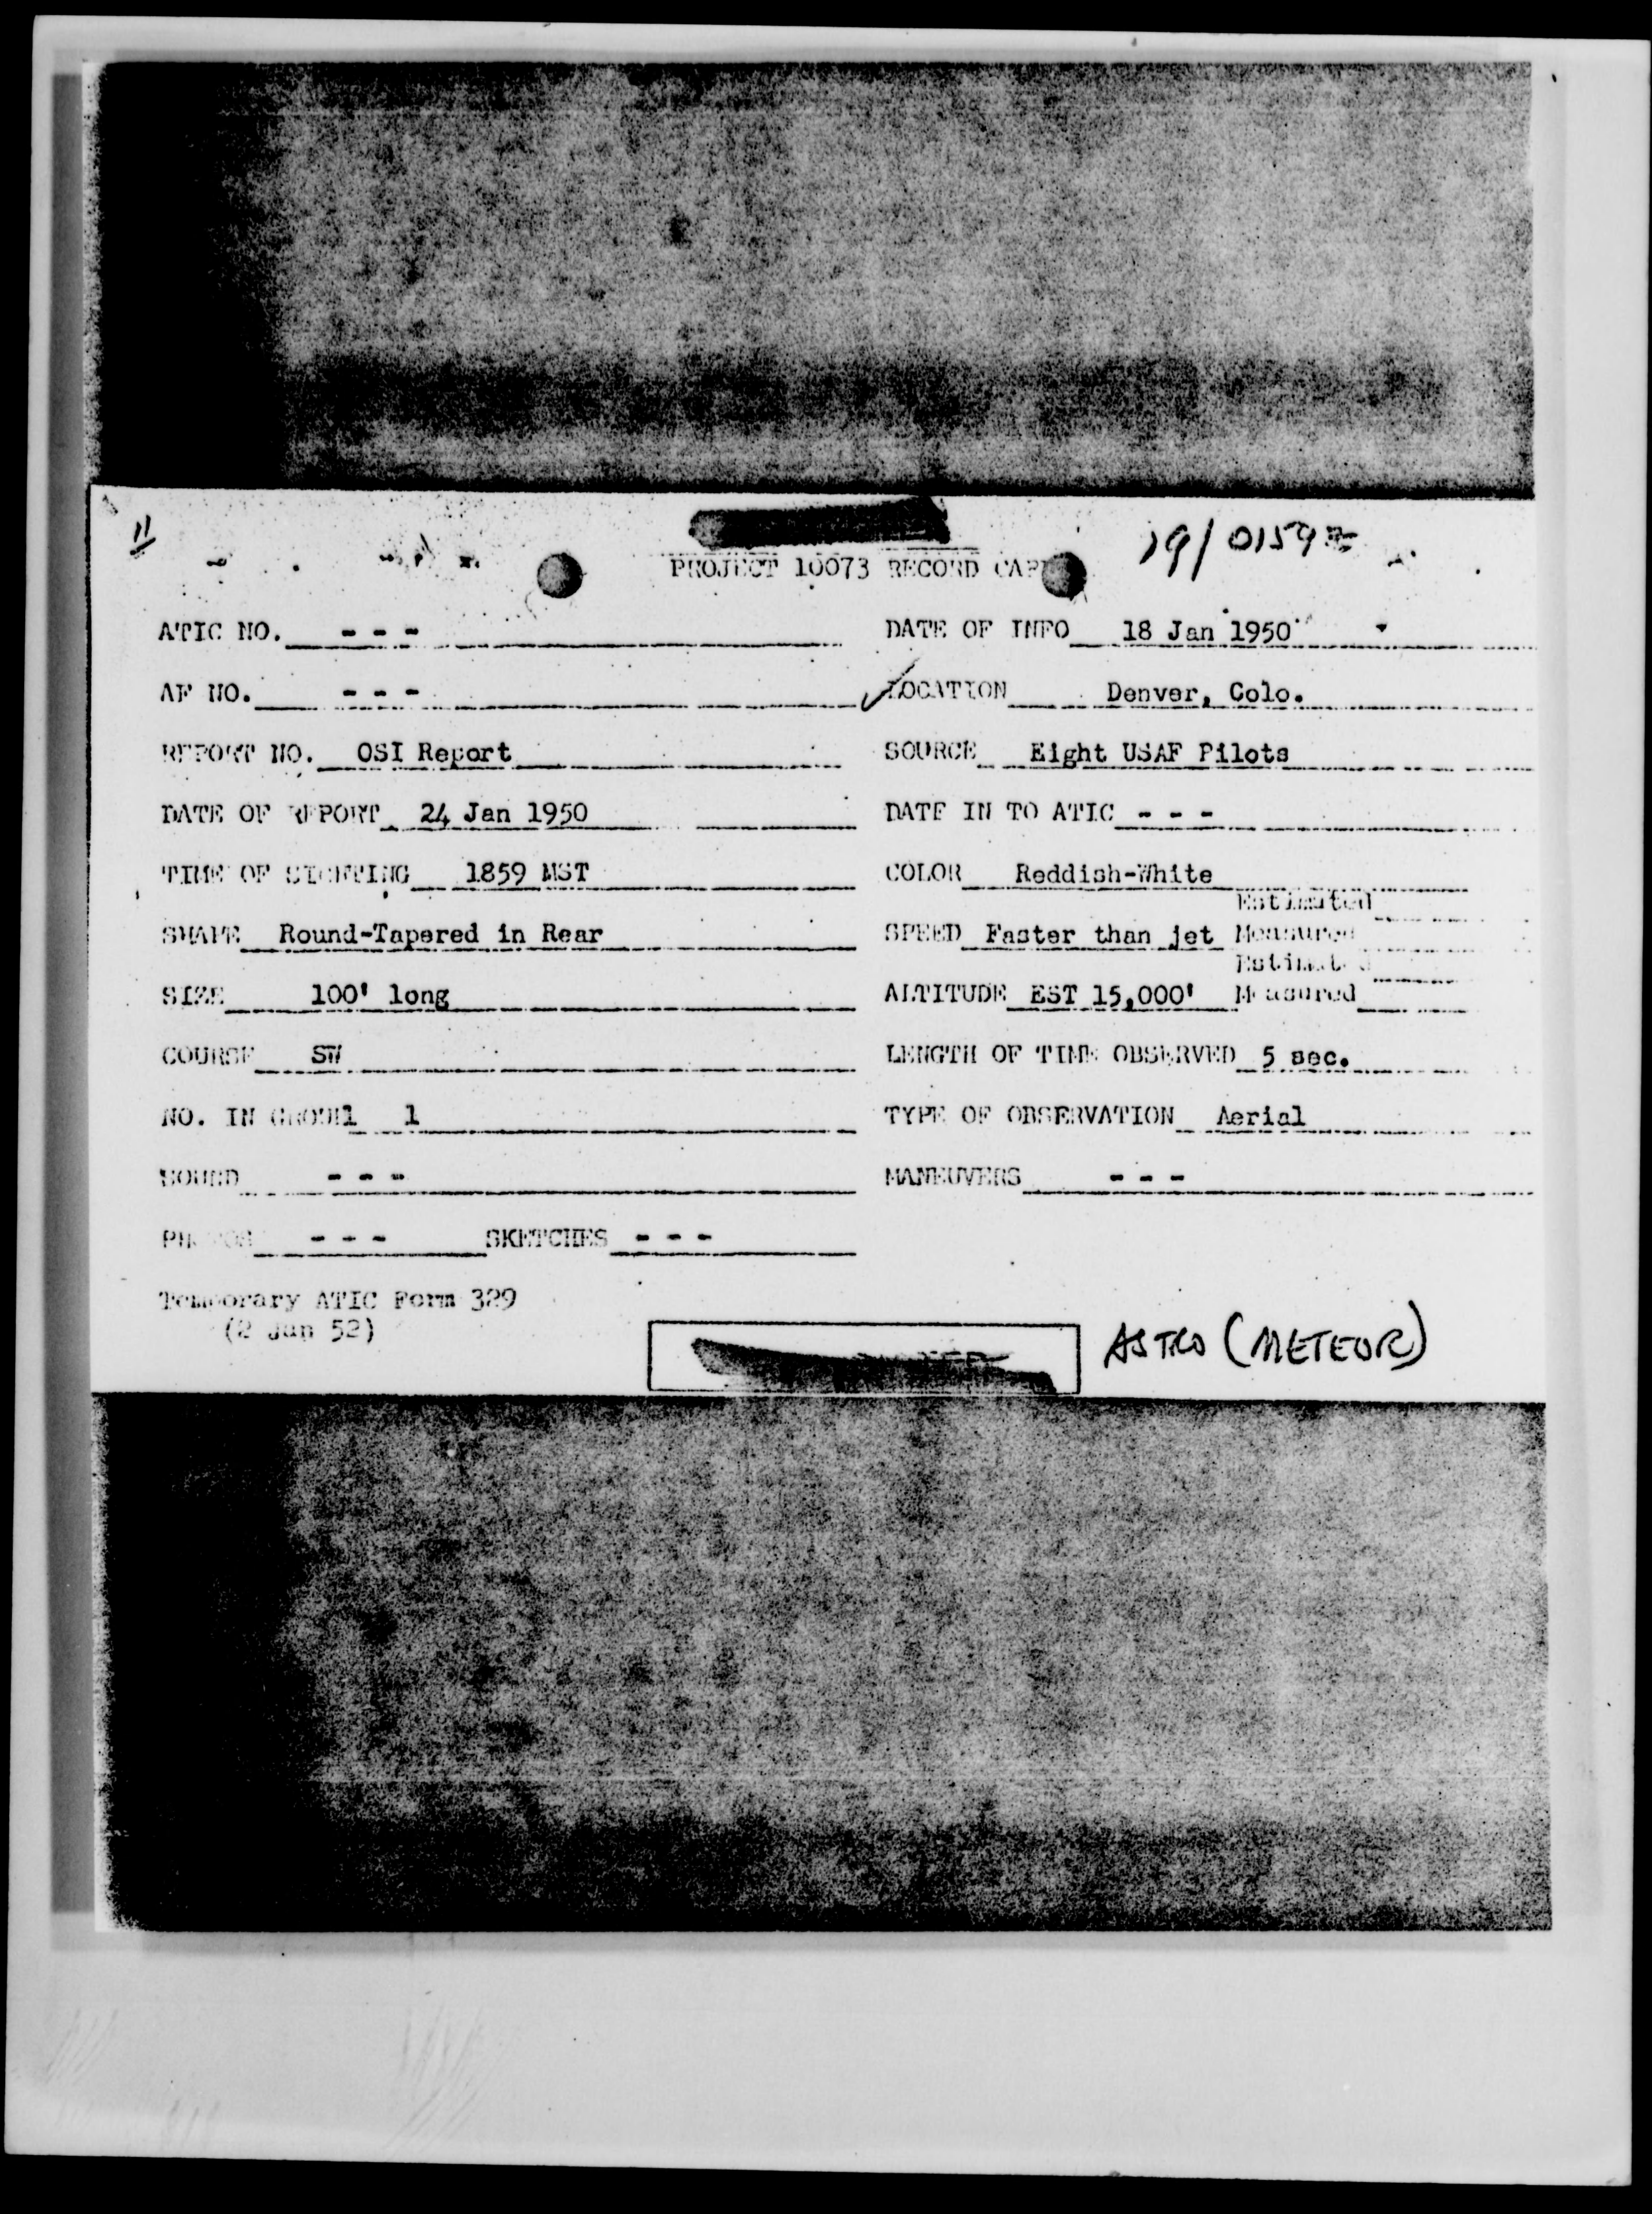 11
19/0159Z
PROJECT 10073 RECORD CARD
ATIC NO. - - - DATE OF INFO 18 Jan 1950
AF NO. - - - LOCATION Denver, Colo.
REPORT NO. OSI Report SOURCE Eight USAF Pilots
DATE OF REPORT 24 Jan 1950 DATE IN TO ATIC - - -
TIME OF SIGHTING 1859 MST COLOR Reddish-White
Estimated
SHAPE Round-Tapered in Rear SPEED Faster than jet Measured
Estimated
SIZE 100' long ALTITUDE EST 15,000' Measured
COURSE SW LENGTH OF TIME OBSERVED 5 sec.
NO. IN GROUP 1 1 TYPE OF OBSERVATION Aerial
SOUND - - - MANEUVERS - - -
PHOTOS - - - SKETCHES - - -
Temporary ATIC Form 329
(2 Jan 52)
ASTRO (METEOR)